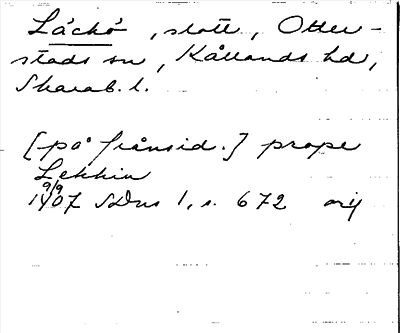 Läckö, slott, Otter-
stads sn, Kållands hd,
Skarab. l.
[på frånsid.] prope
Lekkiu
9/9
1407 SDns 1, s. 672 orig